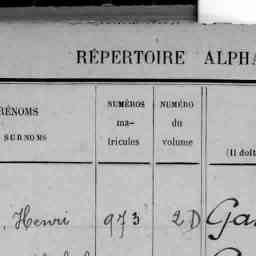 RÉPERTOIRE ALPHA
RÉNOMS
SURNOMS
NUMÉROS
ma-
tricules
NUMÉRO
du
volume
(Il doit
, Henri 973 2D Ga